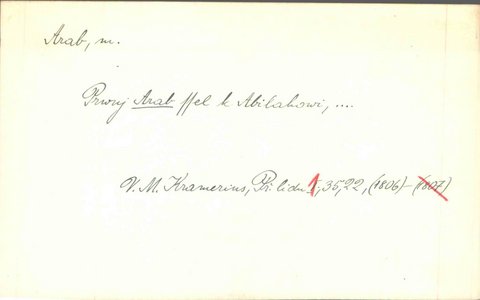 Arab, m.
Prwnj Arab ssel k Abilahowi, ....
V. M. Kramerius, Př. lidu 1, 35, 22, (1806) - (1807)